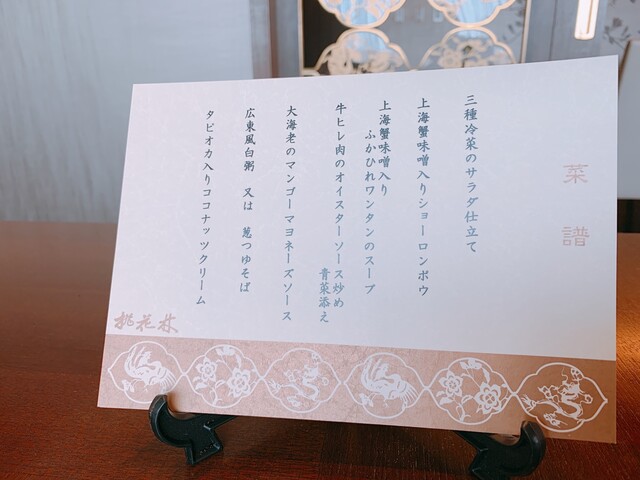 菜譜
三種冷菜のサラダ仕立て
上海蟹味噌入りショーロンポウ
上海蟹味噌入り
ふかひれワンタンのスープ
牛ヒレ肉のオイスターソース炒め
青菜添え
大海老のマンゴーマヨネーズソース
広東風白粥 又は 葱つゆそば
タピオカ入りココナッツクリーム
桃花林